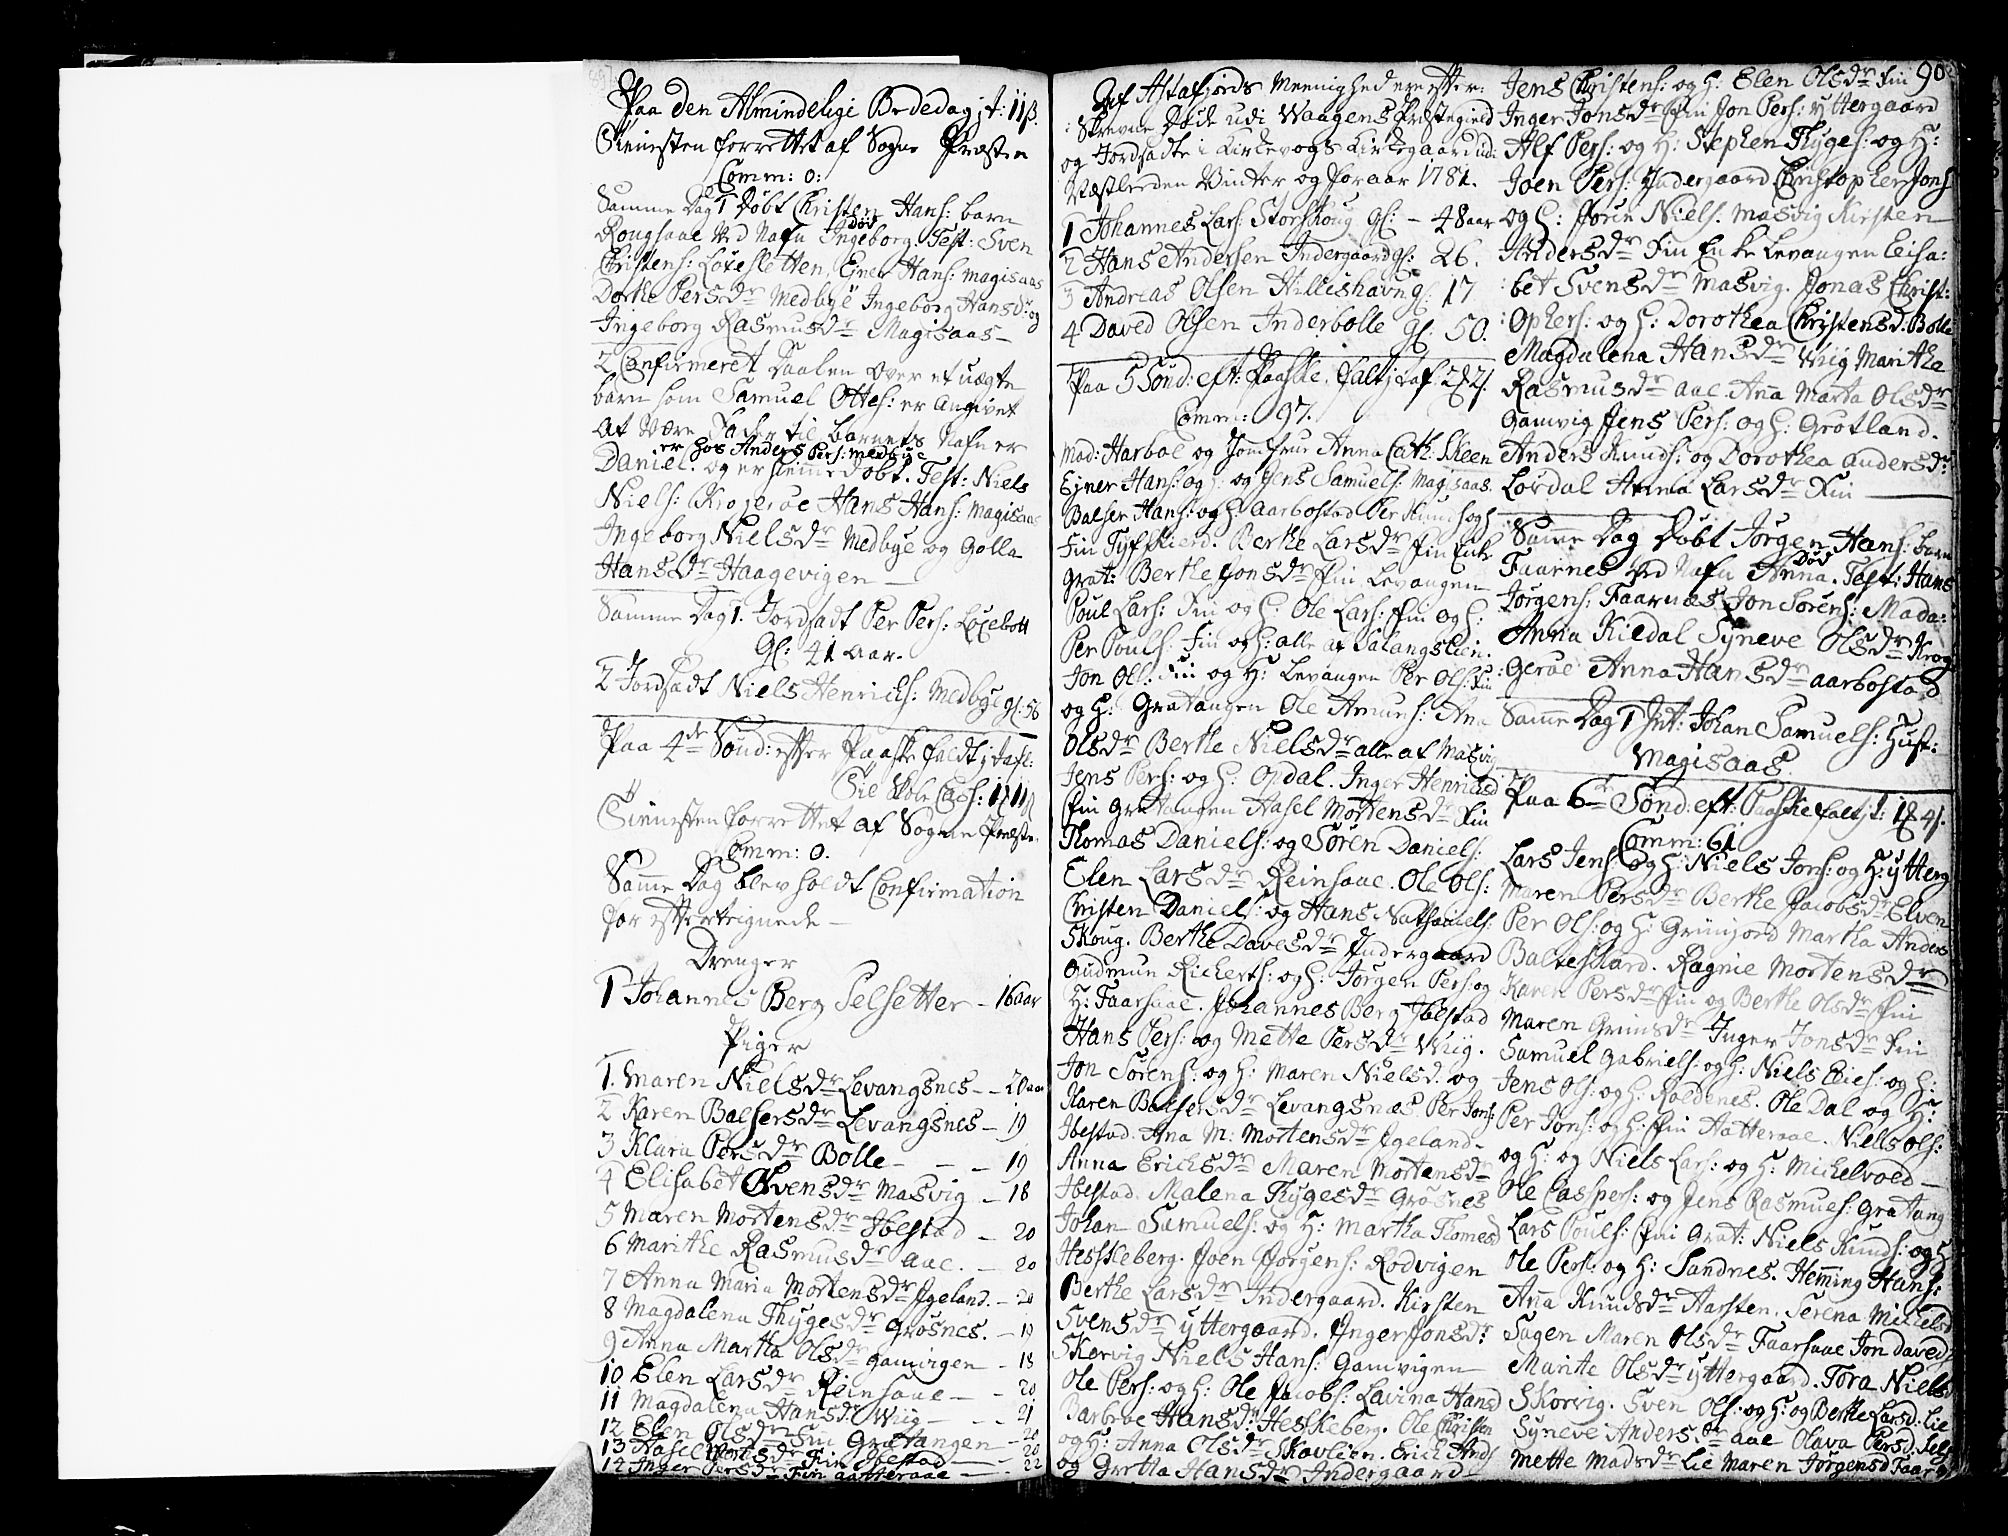 Paa den Almindelige Bededag j t: 11ß.
Tienesten forrettet af Sogne Præsten
Comm: 0:
Samme Dag 1 Døbt Christen Hans: barn
Rougsaae ved Nafn Ingeborg. Test: Sven
død
Christens: Løxesletten, Ejner Hans: Magisaas
Dorthe Persdr Medbye Ingeborg Hansdr og
Ingeborg Rasmusdr Magisaas
2 Confirmeret Daaben over et uægte
barn som Samuel Ottes: er angivet
at være Fader til barnets Nafn er
er hos Anders Pers: Medbye
Daniel. og er hiemedøbt. Test: Niels
Niels: Krogerøe Hans Hans: Magisaas
Ingeborg Nielsdr Medbye og Golla
Hansdr Haagevigen
Samme Dag 1. Jordsadt Per Pers: Løxebott
Gl: 41 aar.
2 Jordsadt Niels Henrichs: Medbye gl: 56
Paa 4de Sønd: efter Paaske faldt j Tafl:
Tienesten forrettet af Sogne Præsten
Comm: 0.
Samme Dag blev holdt Confirmation
for effterteignede
Drenger
1 Johannes Berg Selsetter - 16 aar
Piger
1. Maren Nielsdr Levangsnes - 20 aar
2 Karen Balsersdr Levangsnes - 19
3 Klara Persdr Bolle - - - 19
4 Elisabet Svensdr Masvig - 18
5 Maren Mortensdr Ibestad - 20
6 Marithe Rasmusdr Aae. - 20
7 Anna Maria Mortensdr Igeland. - 20
8 Magdalena Thygesdr Grosnes. - 19
9 Anna Martha Olsdr Gamvigen - 18
10 Elen Larsdr Reinsaae - - 20
11 Magdalena Hansdr Wiig - - - 21
12 Elen Olsdr Fin Gratangen - 20
13 Hasel Mortensdr Fin Ibestad - 20
14 Inger Persdr Fin Hatteraae - 22
Af Astafjords Meenighed ere effter:
:skrevne døde udi Waagens Præstegield
og Jordsadte i Kirkevogs Kirkegaard udi
Næstleeden Vinter og foraar 1781.
1 Johannes Lars: Storskoug gl: - 48 aar
2 Hans Andersen Indergaard gl: 26.
3 Andreas Olsen Hillishavn gl: 17
4 Daved Olsen Inderbolle gl: 50.
Paa 5 Sønd: eft: Paaske. falt j Taf
Comm: 97.
Mad: Harboe og Jomfrue Anna Cath: Skeen
Ejner Hans: og H: og Jens Samuels: Magisaas.
Balser Hans: og H: Aarbostad Per Knuds: og H:
Fin Tyffskierd. Berthe Larsdr Fin Enke
Grat: Berthe Jonsdr Fin Levangen
Poul Lars: Fin og H: Ole Lars: Fin og H:
Per Pouls: Fin og H: alle af Salangslien.
Jon Ols: Fin og H: Levangen Per Ols: Fin
og H: Gratangen Ole Amues: Ana
Olsdr Berthe Nielsdr alle af Masvig
Jens Pers: og H: Opdal. Inger Henrichsd
Fin Gratangen Hasel Mortensdr Fin
Thomas Daniels: og Søren Daniels:
Elen Larsdr Reinsaae. Ole Ols:
Christen Daniels: og Hans Nathaniels:
Skoug. Berthe Davesdr Indergaard
Gudmun Richerts: og H: Jørgen Pers: og
H: Faarsaae. Johannes Berg Ibestad
Hans Pers: og Mette Persdr Wiig.
Jon Sørens: og H: Maren Nielsd. og
Karen Balsersdr Levangsnæs Per Jons:
Ibestad. Ana M: Mortensdr Igeland
Anna Erichsdr Maren Mortensdr
Ibestad. Malena Thygesdr Grosnes
Johan Samuels: og H: Martha Thomesd
Hesskeberg. Joen Jørgens: Rodvigen
Berthe Larsdr Indergaard. Kirsten
Svensdr Yttergaard. Inger Jonsdr
Skorvig Niels Hans: Gamvigen
Ole Pers: og H: Ole Jacobs: Lavina Hansd
Barbroe Hansdr Hesskeberg. Ole Christen
og H: Anna Olsdr Skavlien. Erick Ands
og Gretha Hansdr Indergaard
90
Jens Christens: og H: Elen Olsdr Fin
Inger Jonsdr Fin Jon Pers: Yttergaard
Alf Pers: og H: Stephen Thyges: og H:
Joen Pers: Indergaard Christopher Jons
og H: Joren Niels: Masvig Kirsten
Andersdr Fin Enke Levangen Elisa:
:bet Svensdr Masvig. Jonas Christ:
:ophers: og H: Dorothea Christensd: Bolle
Magdalena Hansdr Wiig Marithe
Rasmusdr Aae. Ana Marta Olsdr
Gamvig Jens Pers: og H: Grotland.
Anders Knuds: og Dorothea Andersdr
Lordal Anna Larsdr Fin
Samme Dag Døbt Jørgen Hans: barn
Faarnes ved Nafn Anna. Test: Hans
Død
Jørgens: Faarnæs Jon Sørens: Mada:
Anna Kildal Syneve Olsdr Krog
:gerøe Anna Hansdr Aarbostad
Samme Dag 1 Int: Johan Samuels: Hust:
Magisaas
Paa 6te Sønd: eft: Paaske falt j t:
Comm: 61
Lars Jens: og H: Niels Jons: og H: Ytterg
Maren Persdr Berthe Jacobsdr Elven
Per Ols: og H: Grunjord Martha Anders
Balteskard. Ragnie Mortensdr
Karen Persdr Fin og Berthe Olsdr Fin
Maren Grimsdr Inger Jonsdr Fin
Samuel Gabriels: og H: Niels Elies: og H:
Jens Ols: og H: Roldenes. Ole Dal og H:
Per Jons: og H: Fin Hatteraae. Niels Ols:
og H: og Niels Lars: og H: Mickelvoed
Ole Caspers: og Jens Rasmues: Gratang
Lars Pouls: Fin Grat: Niels Knuds: og H
Ole Pers: og H: Sandnes. Heming Hans:
Anna Knudsdr Aarsten. Serena Mickelsd
Sagen Maren Olsdr Faarsaae Jon Daveds
Marite Olsdr Yttergaard. Tora Nielsd
Skorvig. Sven Ols: og H: og Berthe Larsd. Lie
Syneve Andersdr Aae Olava Persd. Sels
Mette Madsdr Lie Maren Jørgensd Faar